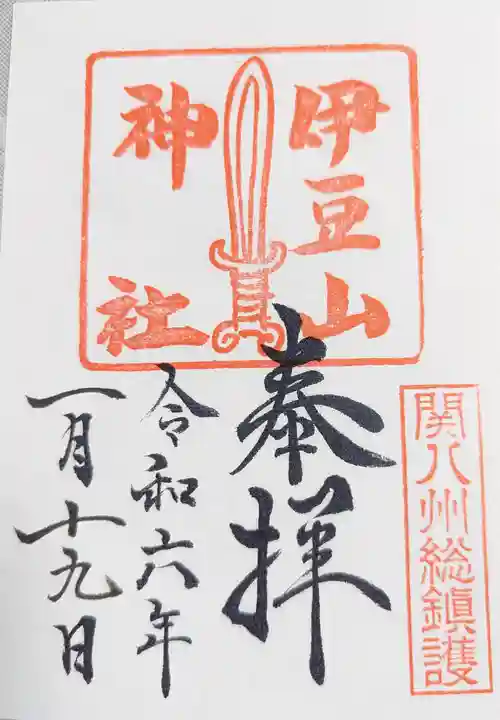 伊豆山
神社
関八州総鎮護
奉拝
令和六年
一月十九日